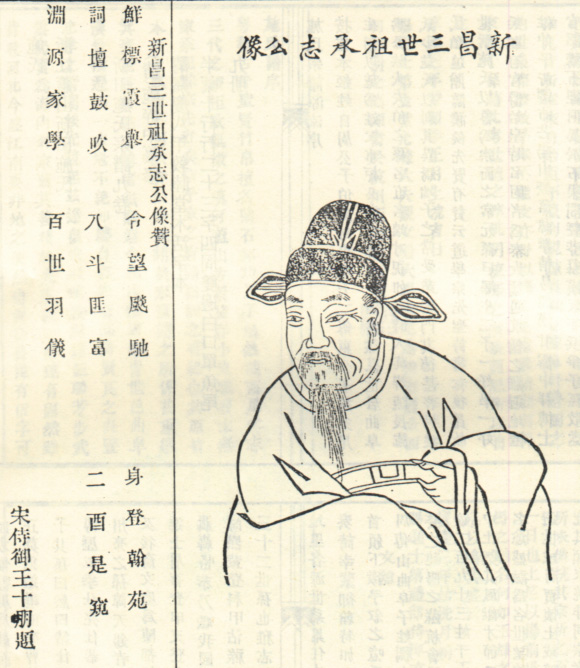 新昌三世祖承志公像
新昌三世祖承志公像贊
鮮標霞舉 令望飈馳 身登翰苑
詞壇鼓吹 八斗匪富 二酉是窺
淵源家學 百世羽儀
宋侍御王十朋題